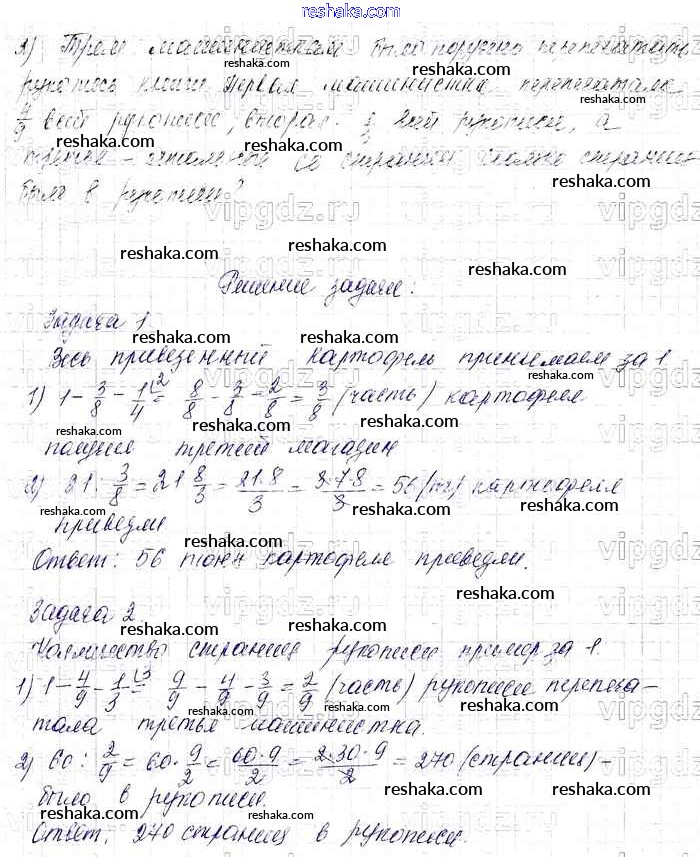 reshaka.com
2) Трем машинисткам было поручено перепечатать
рукопись книги. Первая машинистка перепечатала
4/9 всей рукописи, вторая - 1/3 всей рукописи, а
третья - остальные 60 страниц. Сколько страниц
было в рукописи?
Решение задачи:
Задача 1
Весь привезенный картофель принимаем за 1
1) 1 - 3/8 - 1/4 = 8/8 - 3/8 - 2/8 = 3/8 (часть) картофеля
третий магазин
2) 21 : 3/8 = 21 8/3 = 21·8/3 = 3·7·8/3 = 56 (т) картофеля
привезли
Ответ: 56 тонн картофеля привезли.
Задача 2
Количество страниц рукописи за 1
1) 1 - 4/9 - 1/3 = 9/9 - 4/9 - 3/9 = 2/9 (часть) рукописи перепеча-
тала третья машинистка.
2) 60 : 2/9 = 60 · 9/2 = 60·9/2 = 2·30·9/2 = 270 (страниц) -
было в рукописи.
Ответ: 270 страниц в рукописи.